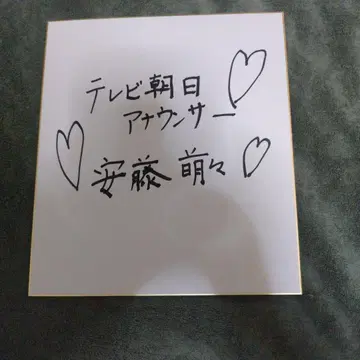 テレビ朝日
アナウンサー
安藤 萌々